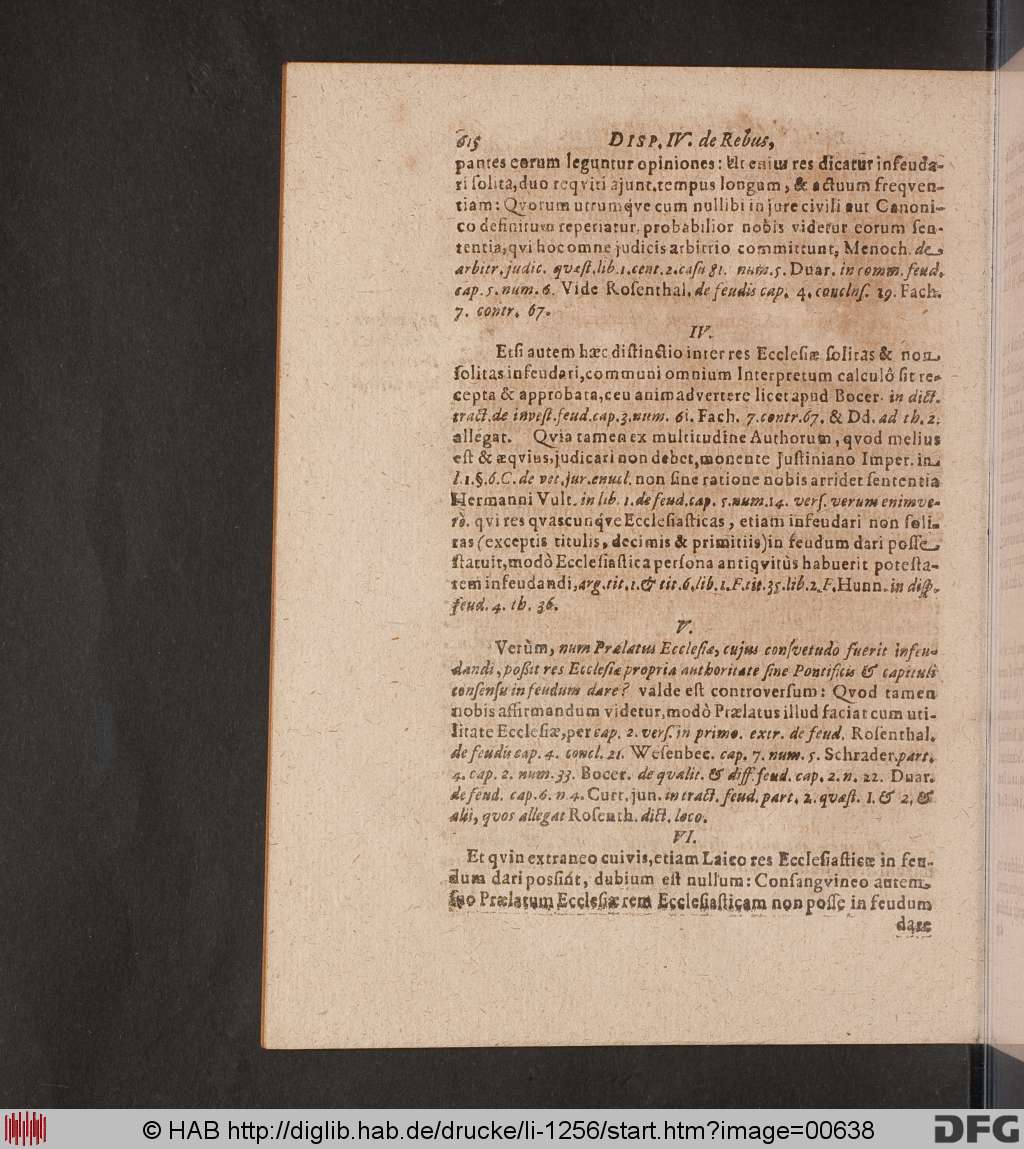 615 DISP. IV. de Rebus,
pantes eorum leguntur opiniones: Ut enim res dicatur infeuda-
ri ſolita, duo reqviri ajunt, tempus longum, & actuum freqven-
tiam: Qvorum utrumqve cum nullibi in jure civili aut Canoni-
co definitum reperiatur, probabilior nobis videtur eorum ſen-
tentia, qvi hoc omne judicis arbitrio committunt, Menoch. de
arbitr. judic. qvæſt. lib. 1. cent. 2. caſu 81. num. 5. Duar. in comm. feud.
cap. 5. num. 6. Vide Roſenthal. de feudis cap. 4. concluſ. 19. Fach.
7. contr. 67.
IV.
Etſi autem hæc diſtinctio inter res Eccleſiæ ſolitas & non
ſolitas infeudari, communi omnium Interpretum calculô ſit re-
cepta & approbata, ceu animadvertere licet apud Bocer. in dict.
tract. de inveſt. feud. cap. 3. num. 61. Fach. 7. contr. 67. & Dd. ad th. 2.
allegat. Qvia tamen ex multitudine Authorum, qvod melius
eſt & æqvius, judicari non debet, monente Juſtiniano Imper. in
l. 1. §. 6. C. de vet. jur. enucl. non ſine ratione nobis arridet ſententia
Hermanni Vult. in lib. 1. de feud. cap. 5. num. 14. verſ. verum enimve-
rò. qvi res qvascunqve Eccleſiaſticas, etiam infeudari non ſoli-
tas (exceptis titulis, decimis & primitiis) in feudum dari poſſe
ſtatuit, modò Eccleſiaſtica perſona antiqvitùs habuerit poteſta-
tem infeudandi, arg. tit. 1. & tit. 6. lib. 1. F. tit. 35. lib. 2. F. Hunn. in diſp.
feud. 4. th. 36.
V.
Verùm, num Prælatus Eccleſiæ, cujus conſvetudo fuerit infeu-
dandi, poßit res Eccleſiæ propria authoritate ſine Pontificis & capituli
conſenſu in feudum dare? valde eſt controverſum: Qvod tamen
nobis affirmandum videtur, modò Prælatus illud faciat cum uti-
litate Eccleſiæ, per cap. 2. verſ. in primo. extr. de feud. Roſenthal.
de feudis cap. 4. concl. 21. Weſenbec. cap. 7. num. 5. Schrader. part.
4. cap. 2. num. 33. Bocer. de qvalit. & diff. feud. cap. 2. n. 22. Duar.
de feud. cap. 6. n. 4. Curt. jun. in tract. feud. part. 2. quæſt. 1. & 2. &
alii, qvos allegat Roſenth. dict. loco.
VI.
Et qvin extraneo cuivis, etiam Laico res Eccleſiaſticæ in feu-
dum dari poſſint, dubium eſt nullum: Conſangvineo autem
ſuo Prælatum Eccleſiæ rem Eccleſiaſticam non poſſe in feudum
dare
© HAB http://diglib.hab.de/drucke/li-1256/start.htm?image=00638
DFG